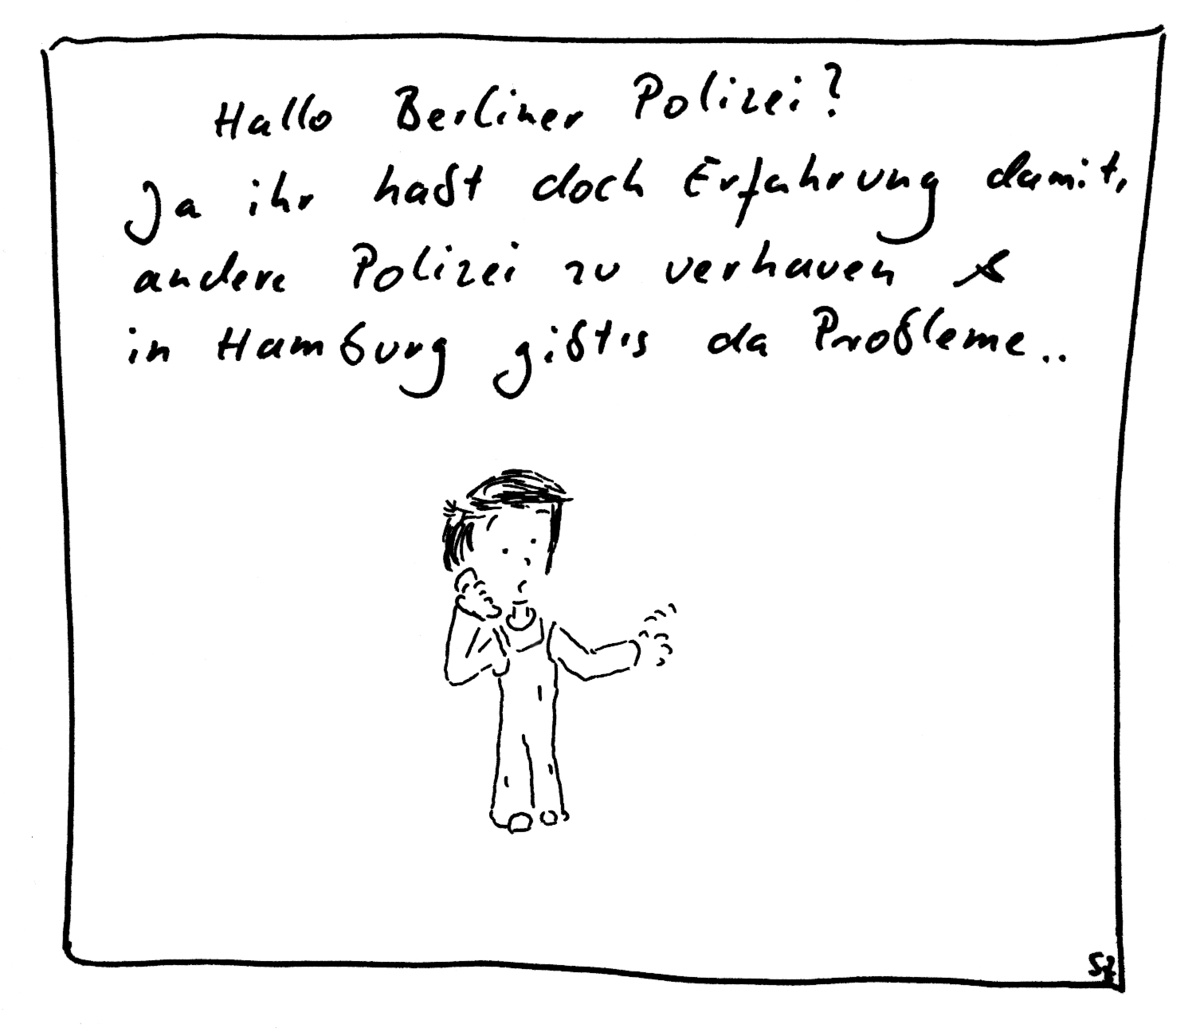 Hallo Berliner Polizei?
Ja ihr habt doch Erfahrung damit,
andere Polizei zu verhauen &
in Hamburg gibt's da Probleme..
SZ